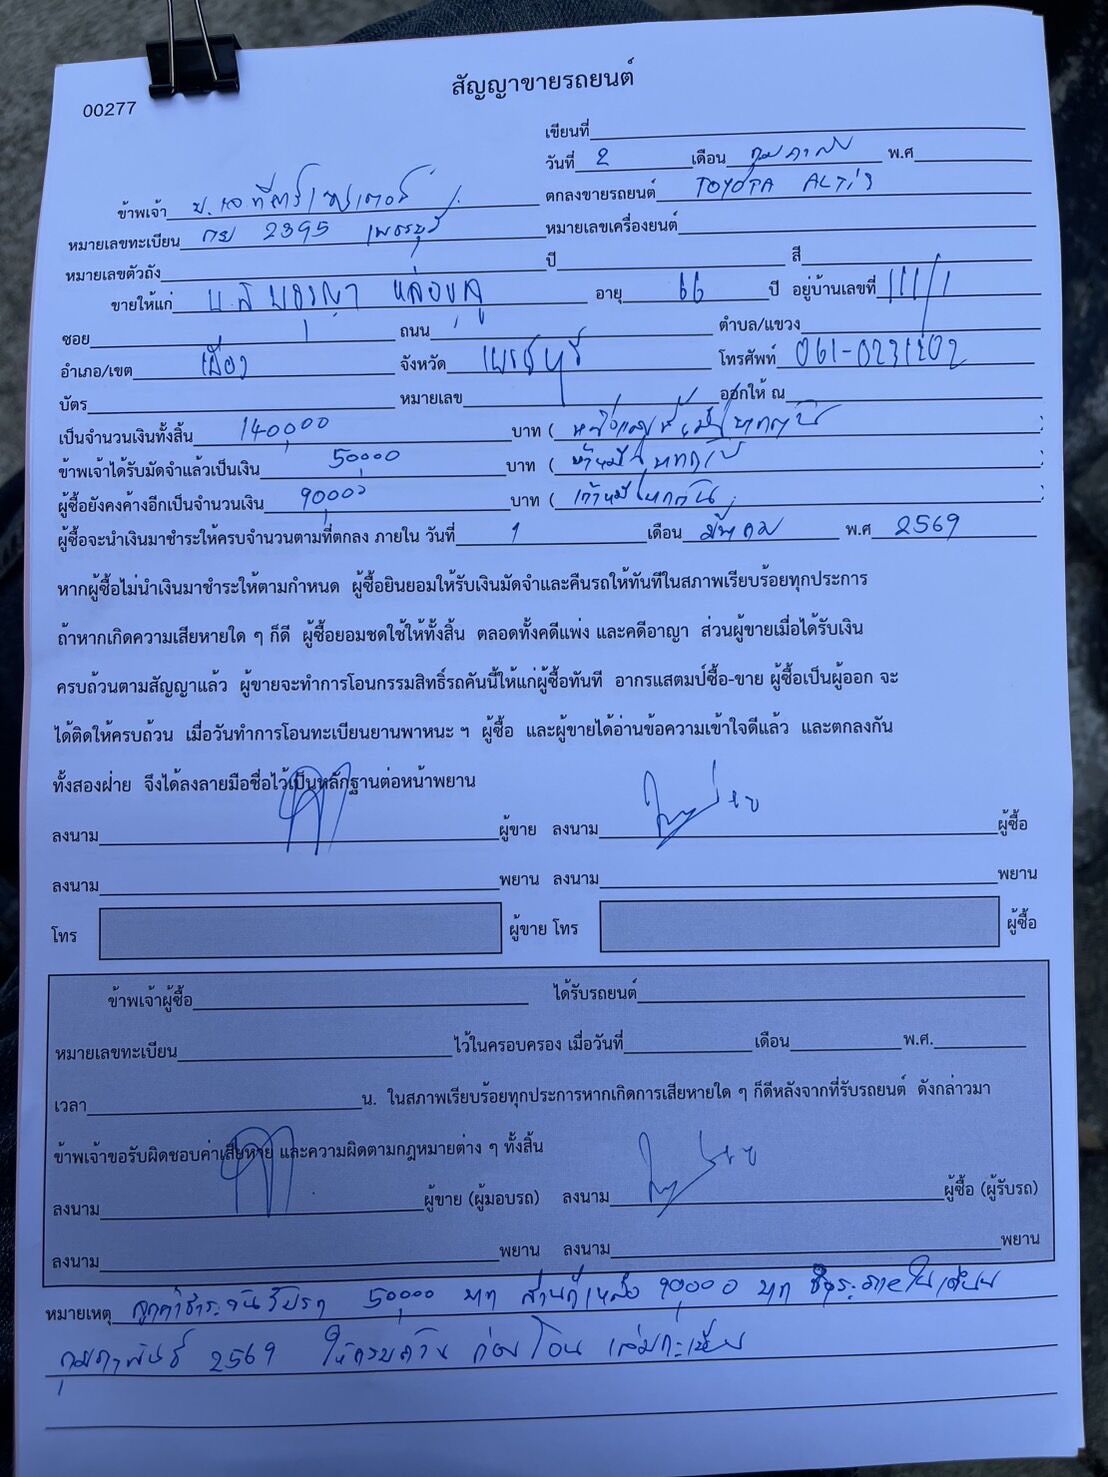 สัญญาขายรถยนต์
00277
เขียนที่
วันที่ 2 เดือน กุมภาพันธ์ พ.ศ
ข้าพเจ้า ตกลงขายรถยนต์ TOYOTA ALTIS
หมายเลขทะเบียน กย 2395 เพชรบุรี หมายเลขเครื่องยนต์
หมายเลขตัวถัง ปี สี
ขายให้แก่ อายุ 66 ปี อยู่บ้านเลขที่ 111/1
ซอย ถนน ตำบล/แขวง
อำเภอ/เขต เมือง จังหวัด เพชรบุรี โทรศัพท์ 061-0231202
บัตร หมายเลข ออกให้ ณ
เป็นจำนวนเงินทั้งสิ้น 140,000 บาท ( หนึ่งแสนสี่หมื่นบาทถ้วน )
ข้าพเจ้าได้รับมัดจำแล้วเป็นเงิน 50000 บาท ( ห้าหมื่นบาทถ้วน )
ผู้ซื้อยังคงค้างอีกเป็นจำนวนเงิน 90,000 บาท ( เก้าหมื่นบาทถ้วน )
ผู้ซื้อจะนำเงินมาชำระให้ครบจำนวนตามที่ตกลง ภายใน วันที่ 1 เดือน มีนาคม พ.ศ 2569
หากผู้ซื้อไม่นำเงินมาชำระให้ตามกำหนด ผู้ซื้อยินยอมให้รับเงินมัดจำและคืนรถให้ทันทีในสภาพเรียบร้อยทุกประการ
ถ้าหากเกิดความเสียหายใด ๆ ก็ดี ผู้ซื้อยอมชดใช้ให้ทั้งสิ้น ตลอดทั้งคดีแพ่ง และคดีอาญา ส่วนผู้ขายเมื่อได้รับเงิน
ครบถ้วนตามสัญญาแล้ว ผู้ขายจะทำการโอนกรรมสิทธิ์รถคันนี้ให้แก่ผู้ซื้อทันที อากรแสตมป์ซื้อ-ขาย ผู้ซื้อเป็นผู้ออก จะ
ได้ติดให้ครบถ้วน เมื่อวันทำการโอนทะเบียนยานพาหนะ ฯ ผู้ซื้อ และผู้ขายได้อ่านข้อความเข้าใจดีแล้ว และตกลงกัน
ทั้งสองฝ่าย จึงได้ลงลายมือชื่อไว้เป็นหลักฐานต่อหน้าพยาน
ลงนาม ผู้ขาย ลงนาม ผู้ซื้อ
ลงนาม พยาน ลงนาม พยาน
โทร ผู้ขาย โทร ผู้ซื้อ
ข้าพเจ้าผู้ซื้อ ได้รับรถยนต์
หมายเลขทะเบียน ไว้ในครอบครอง เมื่อวันที่ เดือน พ.ศ.
เวลา น. ในสภาพเรียบร้อยทุกประการหากเกิดการเสียหายใด ๆ ก็ดีหลังจากที่รับรถยนต์ ดังกล่าวมา
ข้าพเจ้าขอรับผิดชอบค่าเสียหาย และความผิดตามกฎหมายต่าง ๆ ทั้งสิ้น
ลงนาม ผู้ขาย (ผู้มอบรถ) ลงนาม ผู้ซื้อ (ผู้รับรถ)
ลงนาม พยาน ลงนาม พยาน
หมายเหตุ ลูกค้าชำระวันรับรถ 50,000 บาท ส่วนที่เหลือ 90,000 บาท ชำระภายในเดือน
กุมภาพันธ์ 2569 ให้ครบถ้วน ก่อนโอน เล่มทะเบียน